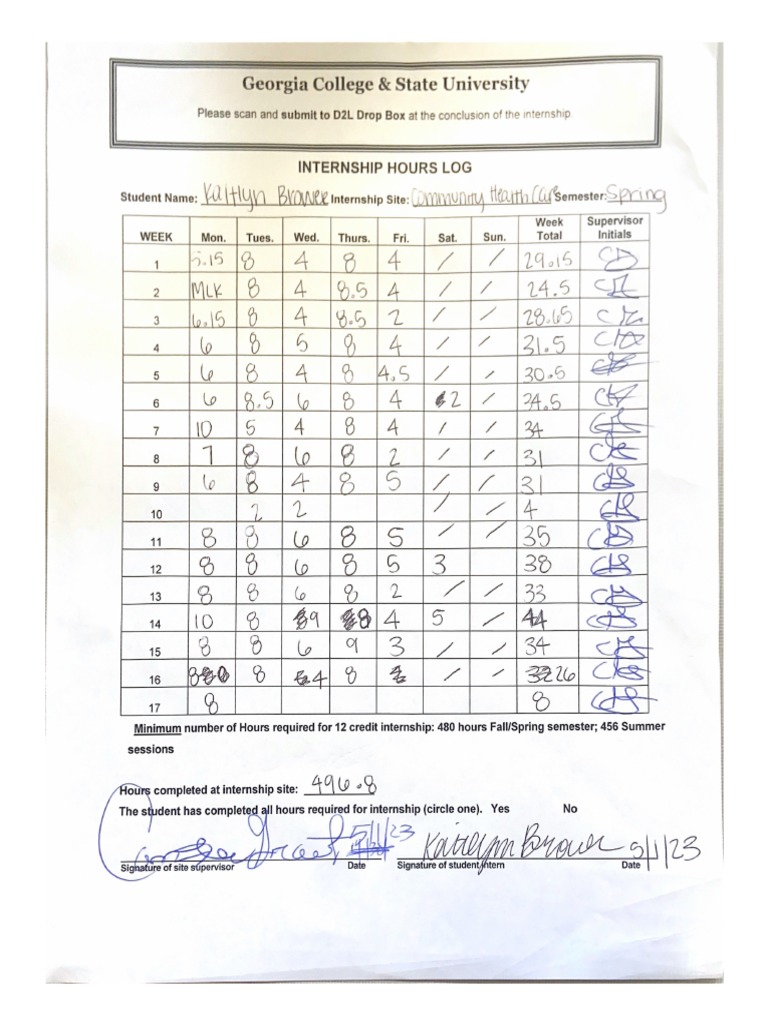 Georgia College & State University
Please scan and submit to D2L Drop Box at the conclusion of the internship.
INTERNSHIP HOURS LOG
Student Name: Kaitlyn Brower Internship Site: Community Health Care Semester: Spring
WEEK Mon. Tues. Wed. Thurs. Fri. Sat. Sun. Week Total Supervisor Initials
1 5.15 8 4 8 4 / / 29.15
2 MLK 8 4 8.5 4 / / 24.5
3 6.15 8 4 8.5 2 / / 28.65
4 6 8 5 8 4 / / 31.5
5 6 8 4 8 4.5 / / 30.5
6 6 8.5 6 8 4 2 / 24.5
7 10 5 4 8 4 / / 34
8 7 8 6 8 2 / / 31
9 6 8 4 8 5 / / 31
10 2 2 / / 4
11 8 8 6 8 5 / / 35
12 8 8 6 8 5 3 38
13 8 8 6 8 2 / / 33
14 10 8 9 8 4 5 / 44
15 8 8 6 9 3 / / 34
16 8 4 8 / / 26
17 8 8
Minimum number of Hours required for 12 credit internship: 480 hours Fall/Spring semester; 456 Summer
sessions
Hours completed at internship site: 496.8
The student has completed all hours required for internship (circle one). Yes No
5/1/23 Kaitlynn Brower 5/1/23
Signature of site supervisor Date Signature of student/intern Date